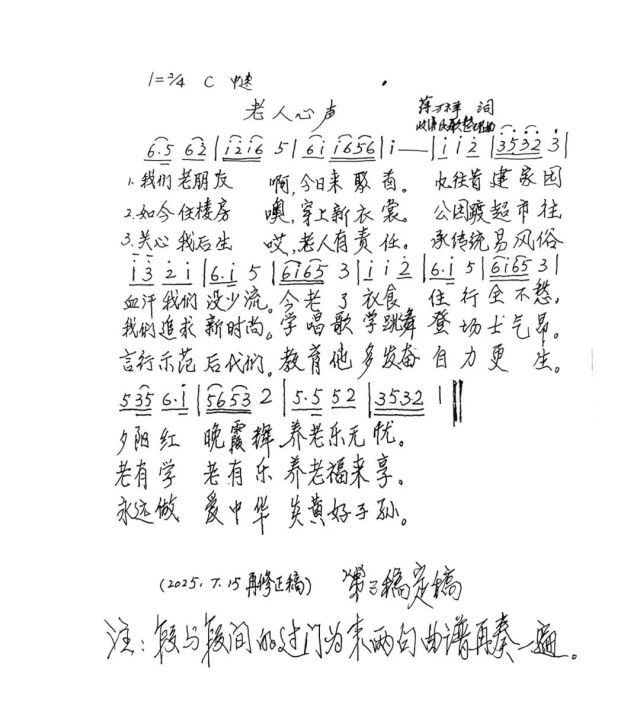 1=2/4 C 中速
老人心声
词
6·5 6 2̇ | i̇ 2̇ i̇ 6 5 | 6 i̇ i̇ 6 5 6 | i̇ — | i̇ i̇ 2̇ | 3̇ 5̇ 3̇ 2̇ 3̇ |
1.我们老朋友 啊,今日来聚首。忆往昔建家园
2.如今住楼房 噢,穿上新衣裳。公园超市往
3.关心我后生 哎,老人有责任。承传统易风俗
i̇ 3̇ 2̇ i̇ | 6·i̇ 5 | 6 i̇ 6 5 3 | i̇ i̇ 2̇ | 6·i̇ 5 | 6 i̇ 6 5 3 |
血汗我们没少流。今老了衣食 住行全不愁,
我们追求新时尚。学唱歌学跳舞 登场士气昂。
言行示范后代们。教育他多发奋 自力更生。
5 3 5 6·i̇ | 5 6 5 3 2 | 5·5 5 2 | 3 5 3 2 1 ‖
夕阳红 晚霞辉 养老乐无忧。
老有学 老有乐 养老福来享。
永远做 爱中华 炎黄好子孙。
(2025.7.15再修正稿) 第三稿定稿
注:段与段间的过门为末两句曲谱再奏一遍。